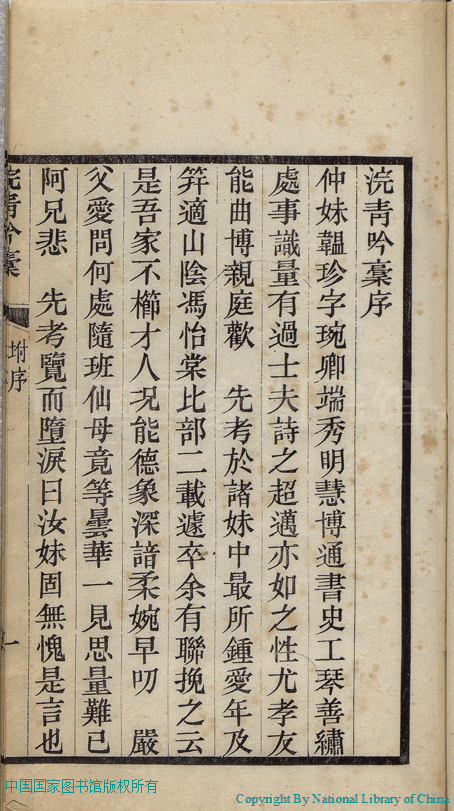 浣青吟稾序
仲妹韞珍字琬卿端秀明慧博通書史工琴善繡
處事識量有過士夫詩之超邁亦如之性尤孝友
能曲博親庭歡　先考於諸妹中最所鍾愛年及
笄適山陰馮怡棠比部二載遽卒余有聯挽之云
是吾家不櫛才人況能德象深諳柔婉早叨　嚴
父愛問何處隨班仙母竟等曇華一見思量難已
阿兄悲　先考覽而墮淚曰汝妹固無愧是言也
浣青吟稾
坿序
一
中国国家图书馆版权所有
Copyright By National Library of China